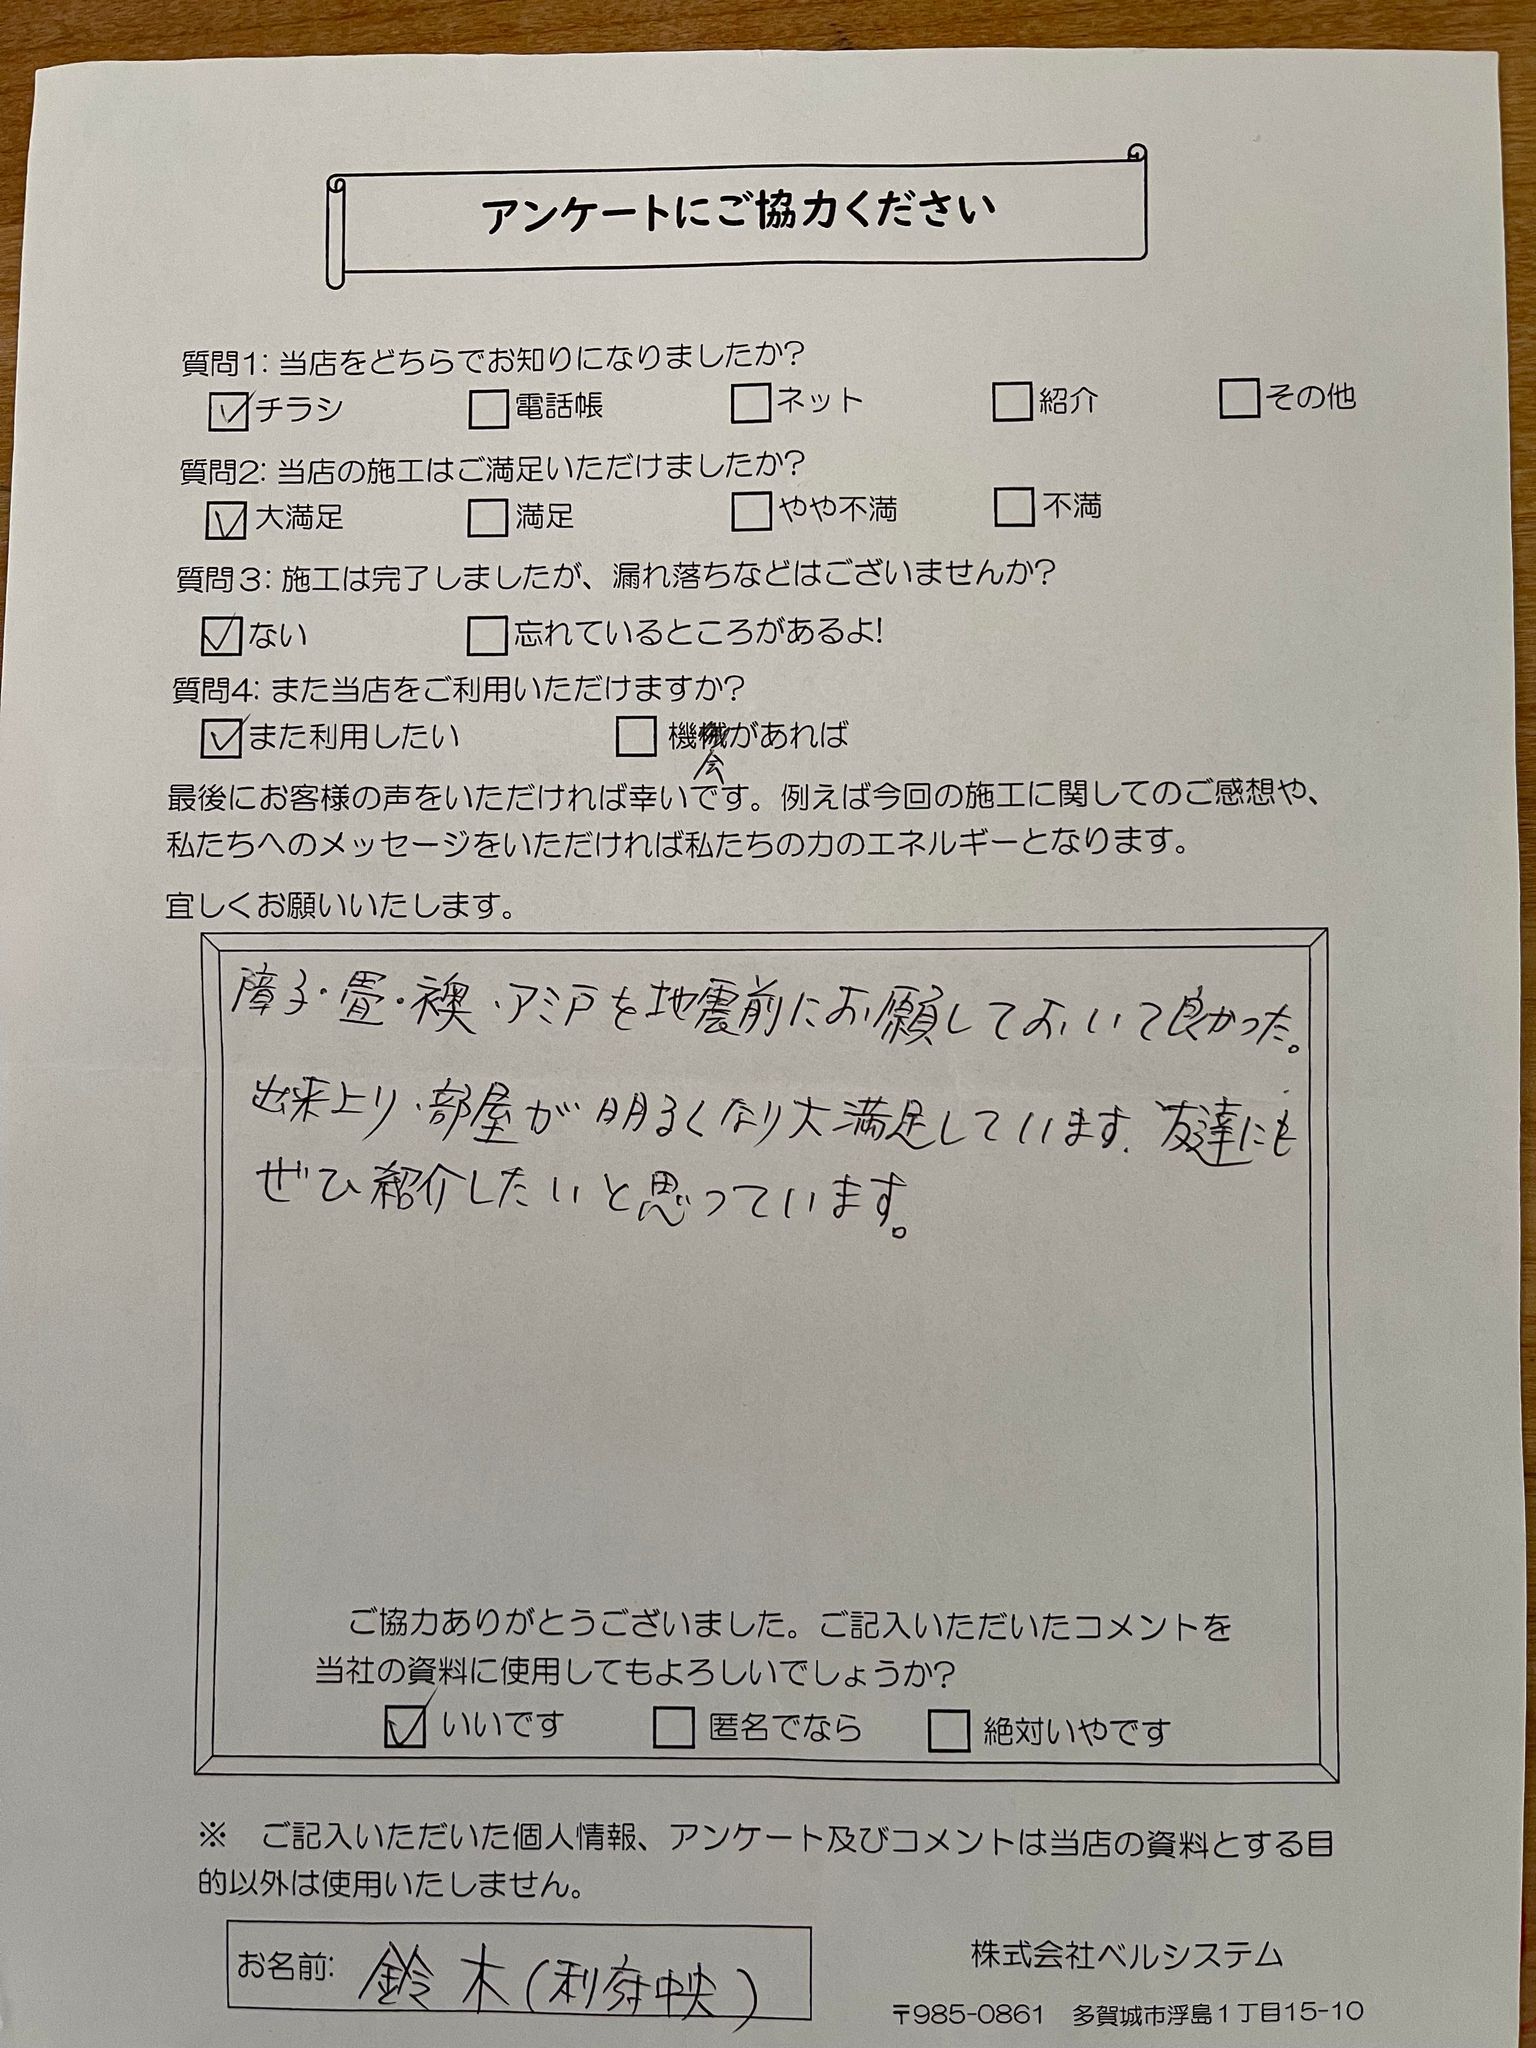 アンケートにご協力ください
質問1: 当店をどちらでお知りになりましたか?
チラシ 電話帳 ネット 紹介 その他
質問2: 当店の施工はご満足いただけましたか?
大満足 満足 やや不満 不満
質問3: 施工は完了しましたが、漏れ落ちなどはございませんか?
ない 忘れているところがあるよ!
質問4: また当店をご利用いただけますか?
また利用したい 機械があれば
会
最後にお客様の声をいただければ幸いです。例えば今回の施工に関してのご感想や、
私たちへのメッセージをいただければ私たちの力のエネルギーとなります。
宜しくお願いいたします。
障子・畳・襖・アミ戸を地震前にお願しておいて良かった。
出来上り、部屋が明るくなり大満足しています。友達にも
ぜひ紹介したいと思っています。
ご協力ありがとうございました。ご記入いただいたコメントを
当社の資料に使用してもよろしいでしょうか?
いいです 匿名でなら 絶対いやです
※ ご記入いただいた個人情報、アンケート及びコメントは当店の資料とする目
的以外は使用いたしません。
お名前: 鈴木(利府中央)
株式会社ベルシステム
〒985-0861 多賀城市浮島1丁目15-10